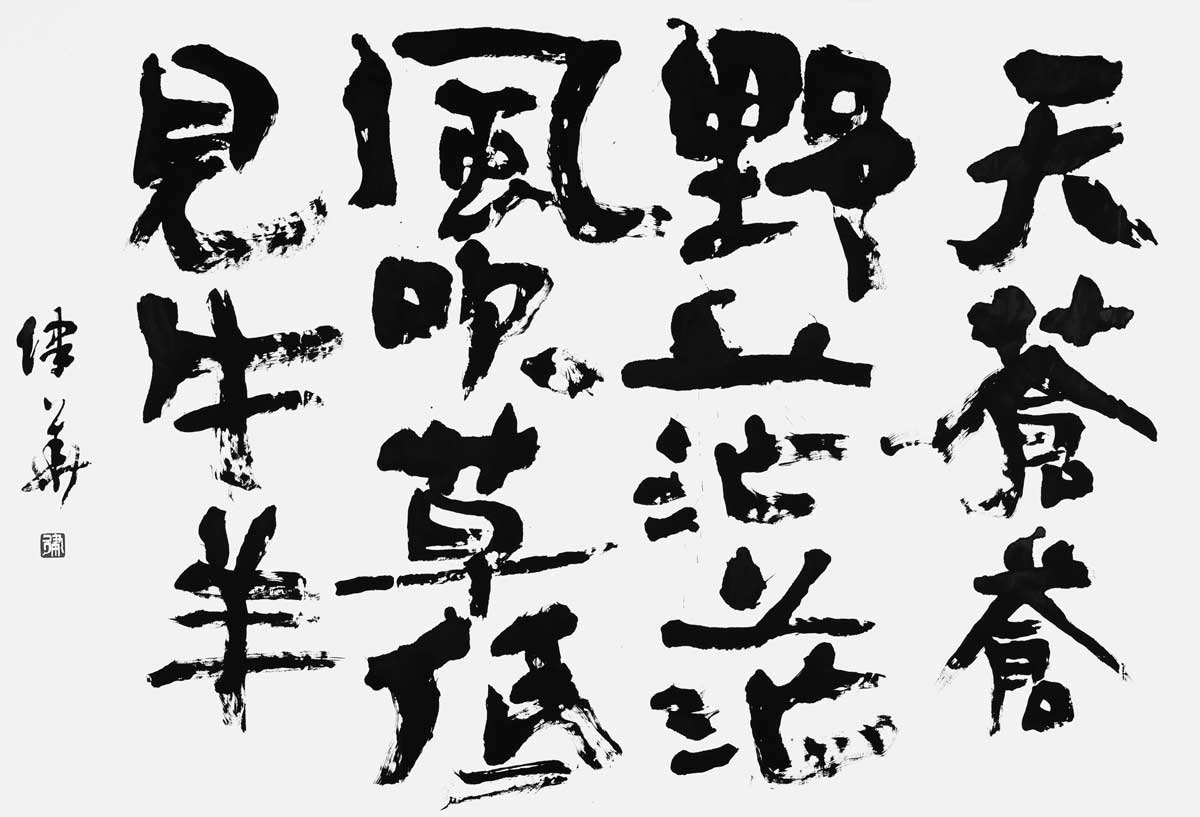 天蒼蒼
野茫茫
風吹草低
見牛羊